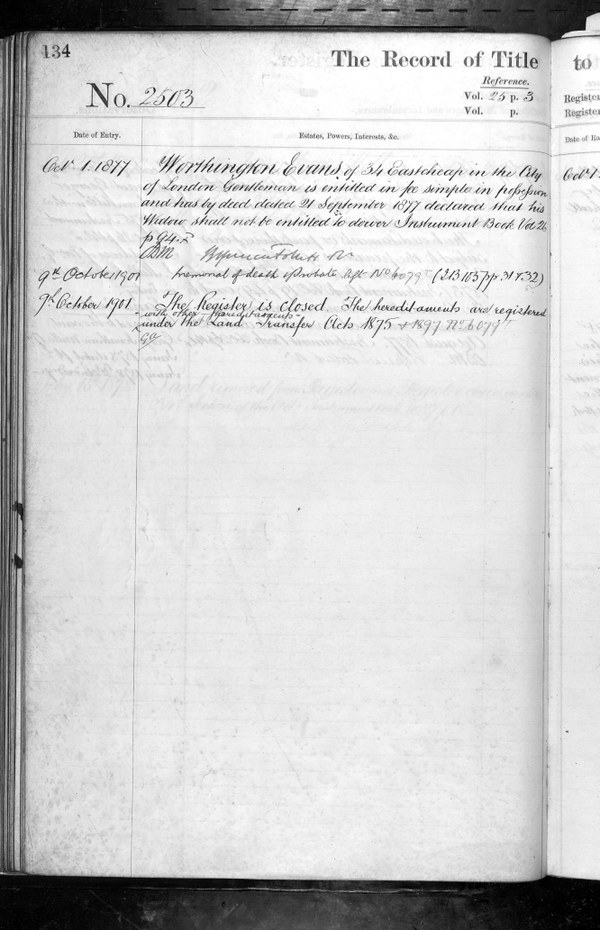 134
The Record of Title
Reference.
No. 2503
Vol. 25 p. 3
Vol. p.
Date of Entry.
Estates, Powers, Interests, &c.
Octr 1. 1877
Worthington Evans of 34 Eastcheap in the City
of London Gentleman is entitled in fee simple in possession
and has by deed dated 21 September 1877 declared that his
Widow shall not be entitled to dower Instrument Book Vol 26
p 94.
9th October 1901
memorial of death & Probate No 6079 (213 105 pp 31 & 32)
9th October 1901.
The Register is closed. The hereditaments are registered
with other hereditaments
under the Land Transfer Acts 1875 & 1897 No 6079
to
Register
Register
Date of En
Octr 1